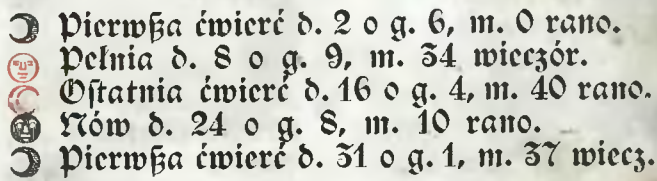 Pierwßa ćwierć d. 2 o g. 6, m. 0 rano.
Pełnia d. 8 o g. 9, m. 34 wieczór.
Oſtatnia ćwierć d. 16 o g. 4, m. 40 rano.
Nów d. 24 o g. 8, m. 10 rano.
Pierwßa ćwierć d. 31 o g. 1, m. 37 wiecz.